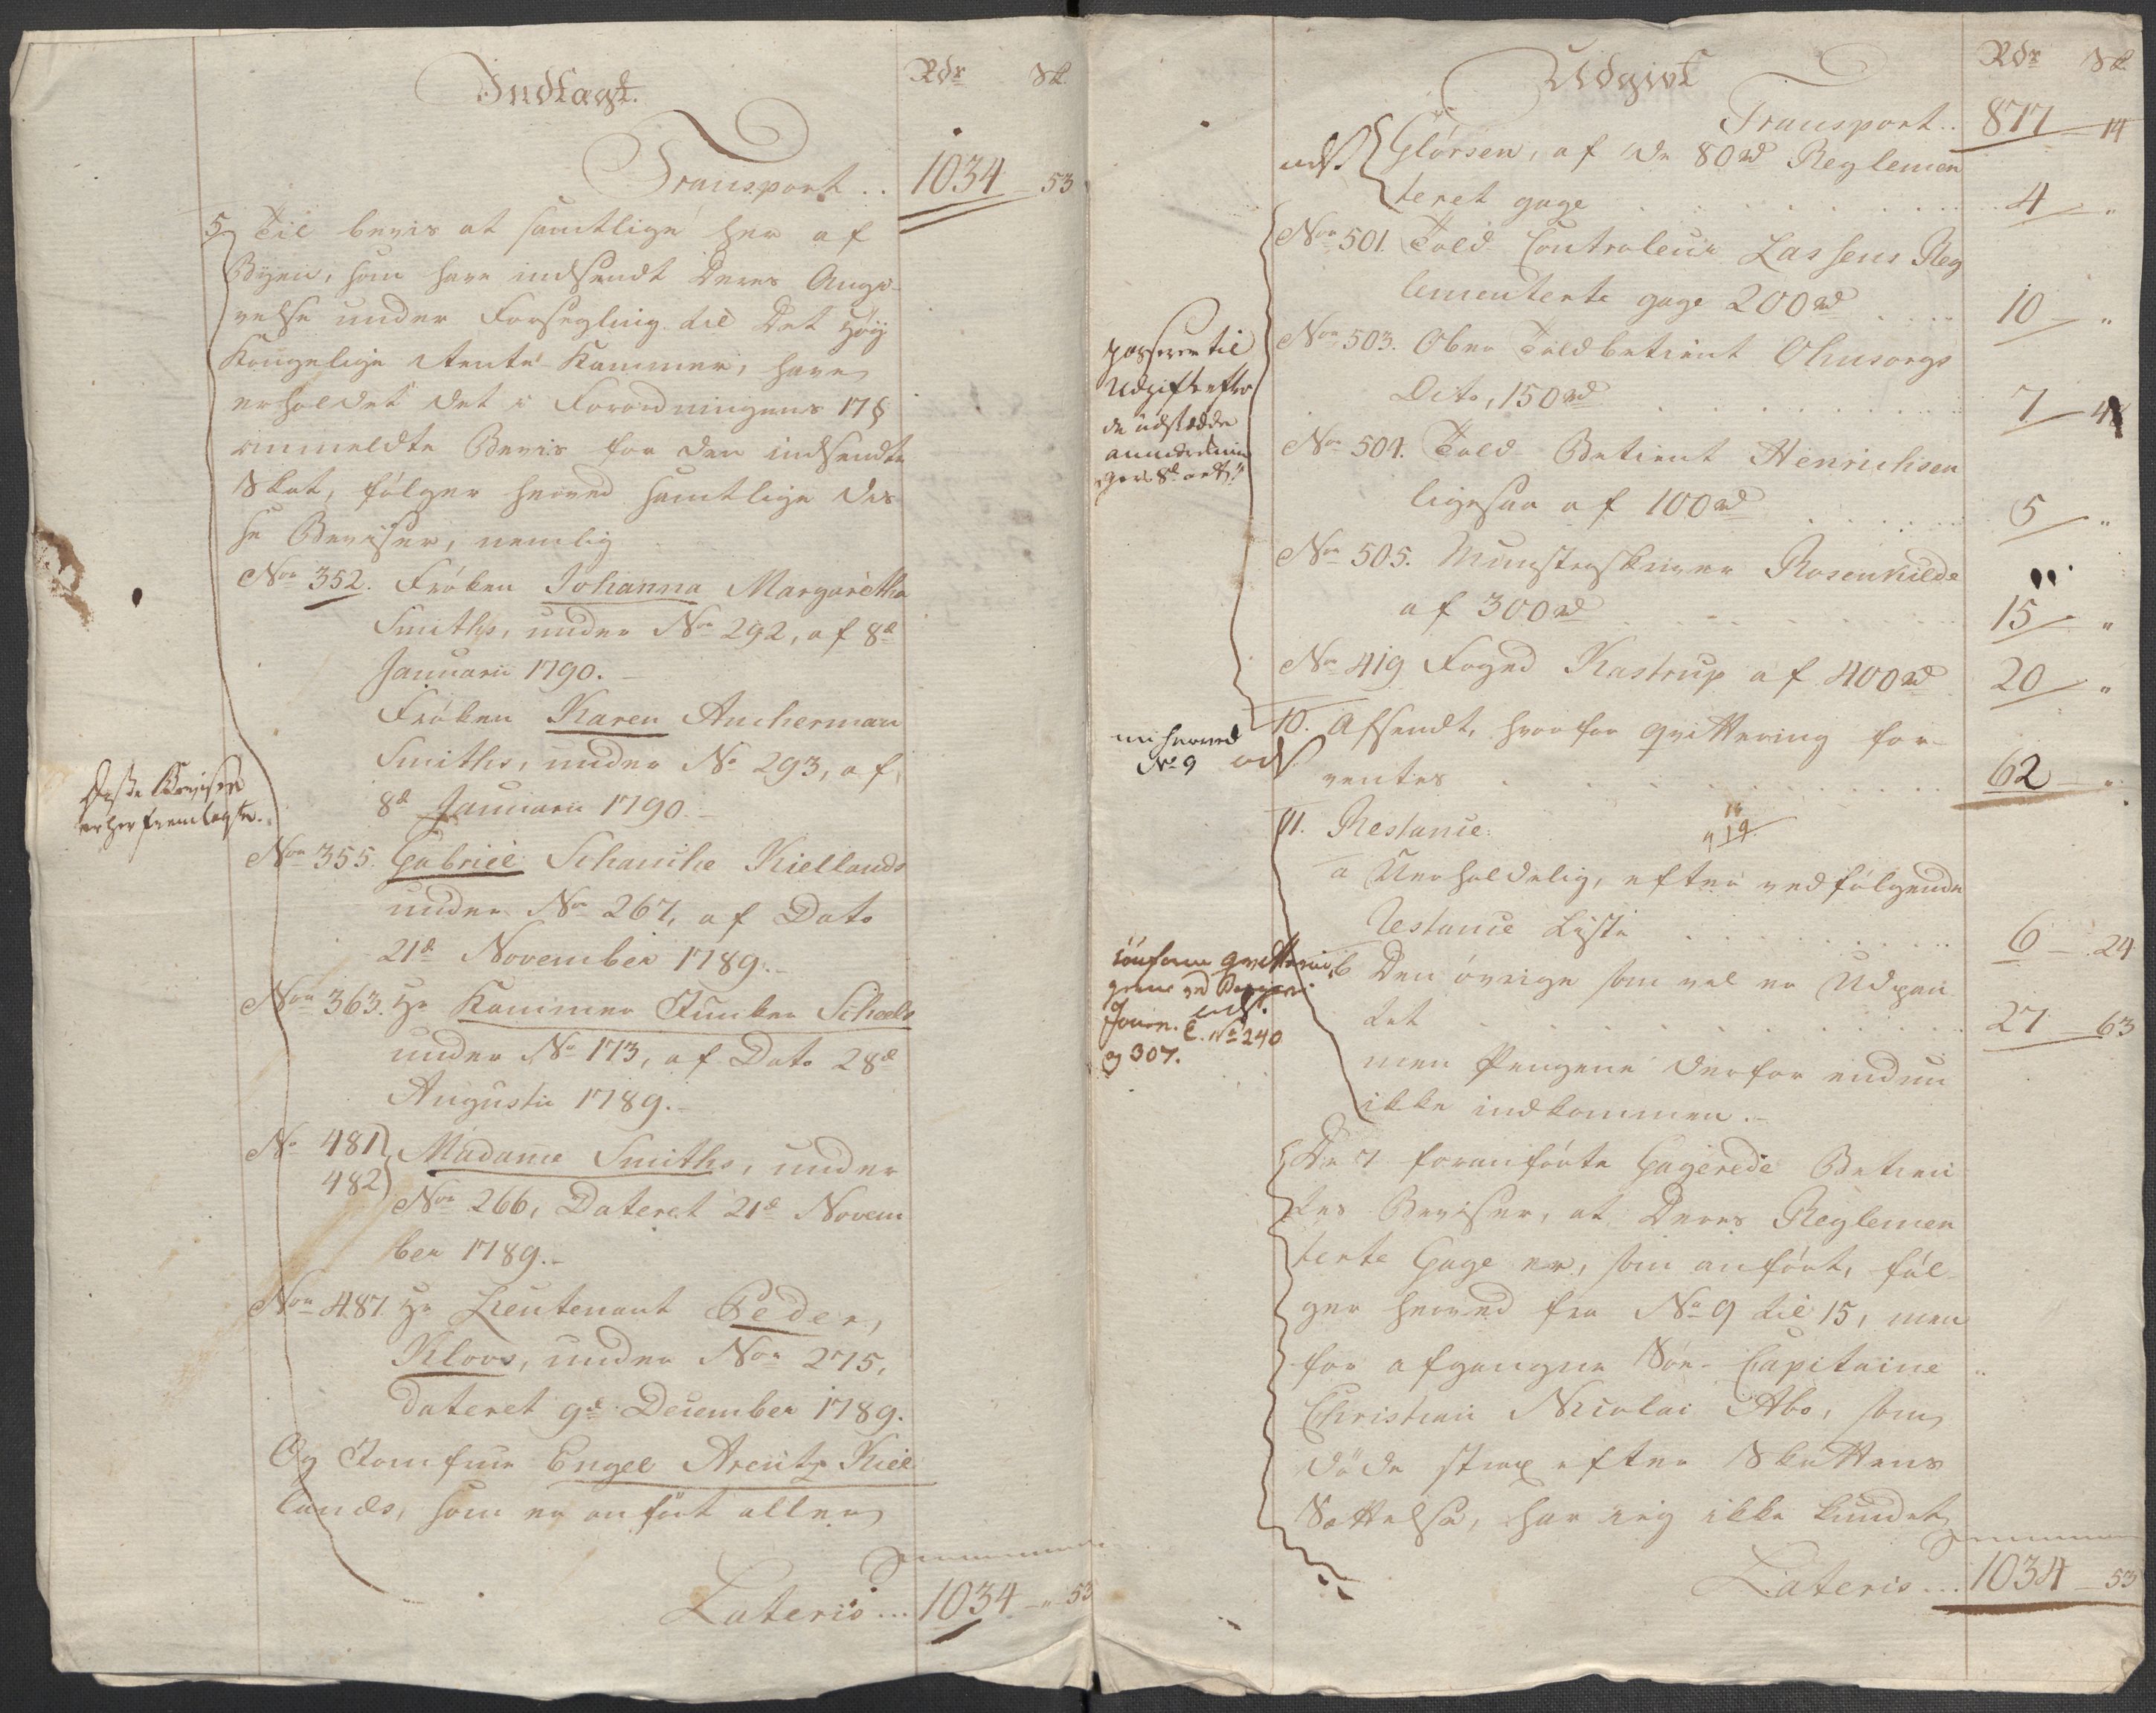 Indtægt.
Rdr Sk.
Transport .. 1034 - 53
5 Til beviis at samtlige her af
Byen, som have indsendt Deres Angi-
velse under Forsegling til Det Høy
Kongelige Rente Kammer, have
erholdet det i Forordningens 17 §
anmeldte Beviis for den indsendte
Skat, følger herved samtlige dis-
se Beviser, nemlig
Nor 352. Frøken Johanna Margaretha
Smiths, under Nor 292, af 8d
Januarii 1790.
Frøken Karen Ancherman
Smiths, under No 293, af
8d Januarii 1790
Disse Beviser
er her fremlagte.
Nor 355. Gabriel Schancke Kiellands
under Nor 267, af Dato
21d November 1789.
Nor 363. Hr Kammer Junker Scheels
under No 173, af Dato 28d
Augustii 1789.
No 481
482 Madame Smiths, under
Nor 266, Dateret 21d Novem
ber 1789.
Nor 487. Hr Lieutenant Peder
Kloos, under Nor 275,
dateret 9d December 1789.
Og Jomfrue Engel Arentz Kiel
lands, som er anført aller
Lateris ... 1034 - " 53
Udgivt
Rdr Sk.
Transport .. 877 - 14
Glørsen, af de 80 rd Reglemen
teret gage 4 - "
Nor 501. Told Controleur Lassens Reg
lementerte gage 200 rd 10 - "
passerer til
Udgift efter
de udstædde
Nor 503. Ober Toldbetient Ohusorgs
Dito, 150 rd 7 - 48
Nor 504. Told Betient Henrichsen
ligesaa af 100 rd 5 - "
Nor 505. Mynsterskriver Rosenkilde
af 300 rd 15 - "
No 419 Foged Kastrup af 400 rd 20 - "
10. Afsendt, hvorfor qvittering for-
ventes 62 - "
herved
No 9
11. Restance:
a Uerholdelig, efter vedfølgende
Restance Liste 6 - 24
b Den øvrige som vel er Udpan
tet 27 - 63
No 240
og 307.
men Pengene derfor endnu
ikke indkommen.
De 7 foranførte Gagerede Betien
tes Beviser, at Deres Reglemen
terte Gage er, som anført, føl-
ger herved fra No 9 til 15, men
for afgangne Søe-Capitaine
Christian Nicolai Abo, som
døde strax efter Skattens
Sættelse, har jeg ikke kundet
Lateris ... 1034 - 53